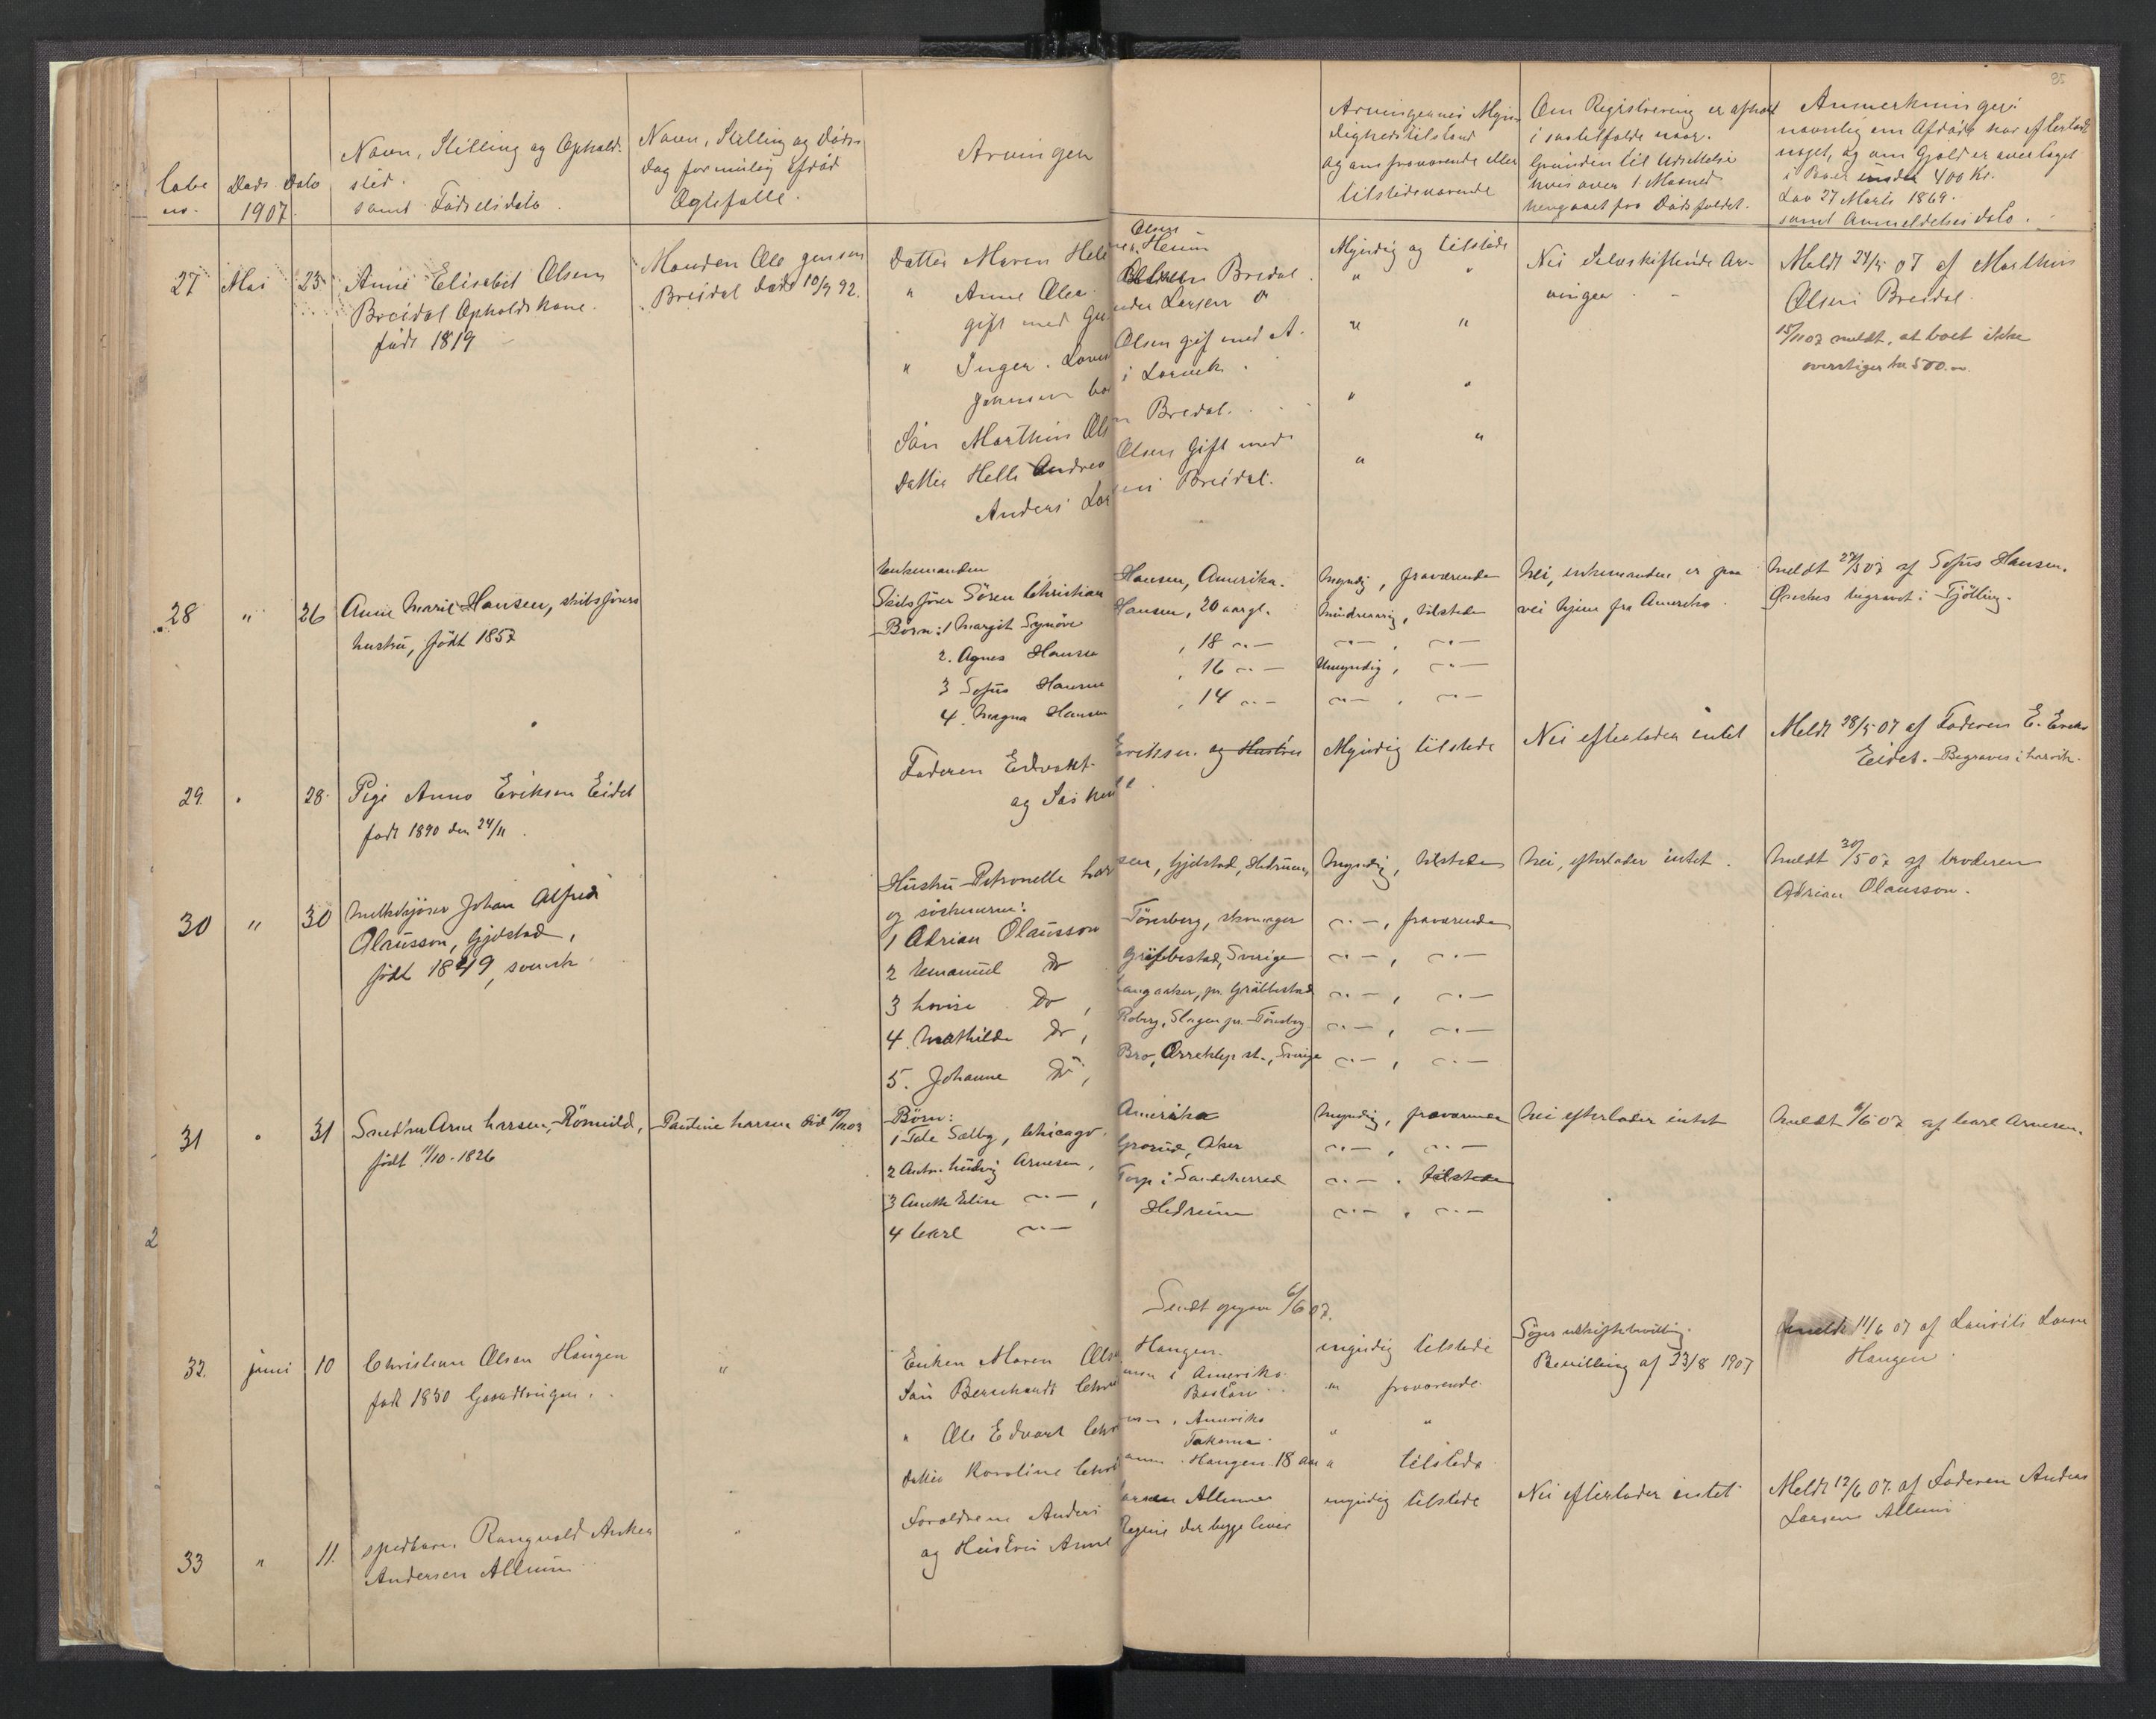 85
Löbe no.
Døds Dato 1907.
Navn, Stilling og Ophold-
sted.
samt Fødselsdato.
Navn, Stilling og Døds-
dag formulig afdød
Ægtefælle.
Arvinger
Arvingernes Myn-
dighedstilstand
og om fraværende eller
tilstedeværende
Om Registrering er afholdt
i saatilfælde naar.
Grunden til Udsettelse
hvis over 1. Maaned
hengaaet fra Dødsfaldet.
Anmerkninger
navnlig om Afdøde har efterladt
noget, og om Gjæld er overtaget
i Boer under 400 Kr.
Lov 27 Marts 1869.
samt Anmeldelses dato.
27 Mai 23 Anne Elisabet Olsen
Breidal Opholdskone.
født 1819
Manden Ole Jensen
Breidal død 10/9 92.
Datter Maren Hel
" Anne Olea Olsen Bredal
gift med Gu Larsen do
" Inger Lovis Olsen gif med A.
Johnsen bo i Larvik.
Søn Marthin Ols Bredal.
Datter Helle Andrea Olsen Gift med
Anders Lar Breidal.
Myndig og tilstede
" "
" "
" "
" "
Nei Selvskiftende Ar-
vinger
Meldt 24/5 07 af Marthin
Olsen Breidal
15/11 07 meldt, at boet ikke
overstiger kr 500.
28 " 26 Anne Marie Hansen, skibsførers
hustru, født 1857
Enkemanden
Skibsfører Sören Christian Hansen, Amerika.
Börn: 1 Margit Synöve Hansen, 20 aargl.
2. Agnes Hansen, 18 -"-
3 Sofus Hansen, 16 -"-
4. Magna Hansen, 14 -"-
Myndig, fraværende
Mindreaarig, tilstede
-"- , -"-
Umyndig, -"-
-"- , -"-
Nei, enkemanden er paa
vei hjem fra Amerika.
Meldt 27/5 07 af Sofus Hansen.
Önskes begravet i Tjölling.
29. " 28. Pige Anna Eriksen Eidet
født 1890 den 24/11.
Faderen Edvart Eriksen og Hustru
og Søsken
Myndig tilstede
Nei efterlader intet
Meldt 28/5 07 af Faderen E. Eriks
Eidet. Begraves i Larvik.
30 " 30 Melkekjører Johan Alfred
Olausson, Gjdstad,
født 1849, svensk
Hustru Petronelle Larsen, Gjdstad, Hedrum,
og söskenerne:
1 Adrian Olausson Tönsberg, skomager
2 Emanuel do Gräbbestad, Sverige
3 Lovise do, Langaaker, pr. Gräbbestad
4. Mathilde do, Roberg, Slagen pr. Tönsberg
5. Johanne do, Bro, Örreklep st., Sverige
Myndig, tilstede
-"- , fraværende
-"- , -"-
-"- , -"-
-"- , -"-
-"- , -"-
Nei, efterlader intet.
Meldt 30/5 07 af broderen
Adrian Olausson.
31 " 31 Arne Larsen, Römild,
født 11/10-1826
Pauline Larsen död 10/11 03
Börn:
1 Tale Sælby, Chicago Amerika
2 Anton Ludvig Arnesen, Grorud, Aker
3 Anette Elise -"- , Torp i Sandeherred
4 Carl -"- Hedrum
Myndig, fraværende
-"- , -"-
-"- . tilstede
-"- , -"-
Nei efterlader intet
Meldt 6/6 07 af Carl Arnesen.
Sendt opgave 6/6 07.
32. juni 10 Christian Olsen Haugen
født 1830 Gaardbruger.
"
Enken Maren Ols Haugen.
Søn Bernhardt Chri i Amerika
Boston
" Ole Edvart Chr , Amerika
Takoma
Datter Karoline Chri Haugen 18 aar
myndig tilstede
" fraværende
" "
" tilstede
Søger uskiftebevilling.
Bevilling af 23/8 1907
Meldt 11/6 07 af Laurits Larsen
Haugen
33 " 11. spedbarn Rangvald Anker
Andersen Allum
"
Forældrene Anders Larsen Allum
og Hustru Anne Regine der begge lever
myndig tilstede
Nei efterlader intet
Meldt 12/6 07. af Faderen Anders
Larsen Allum